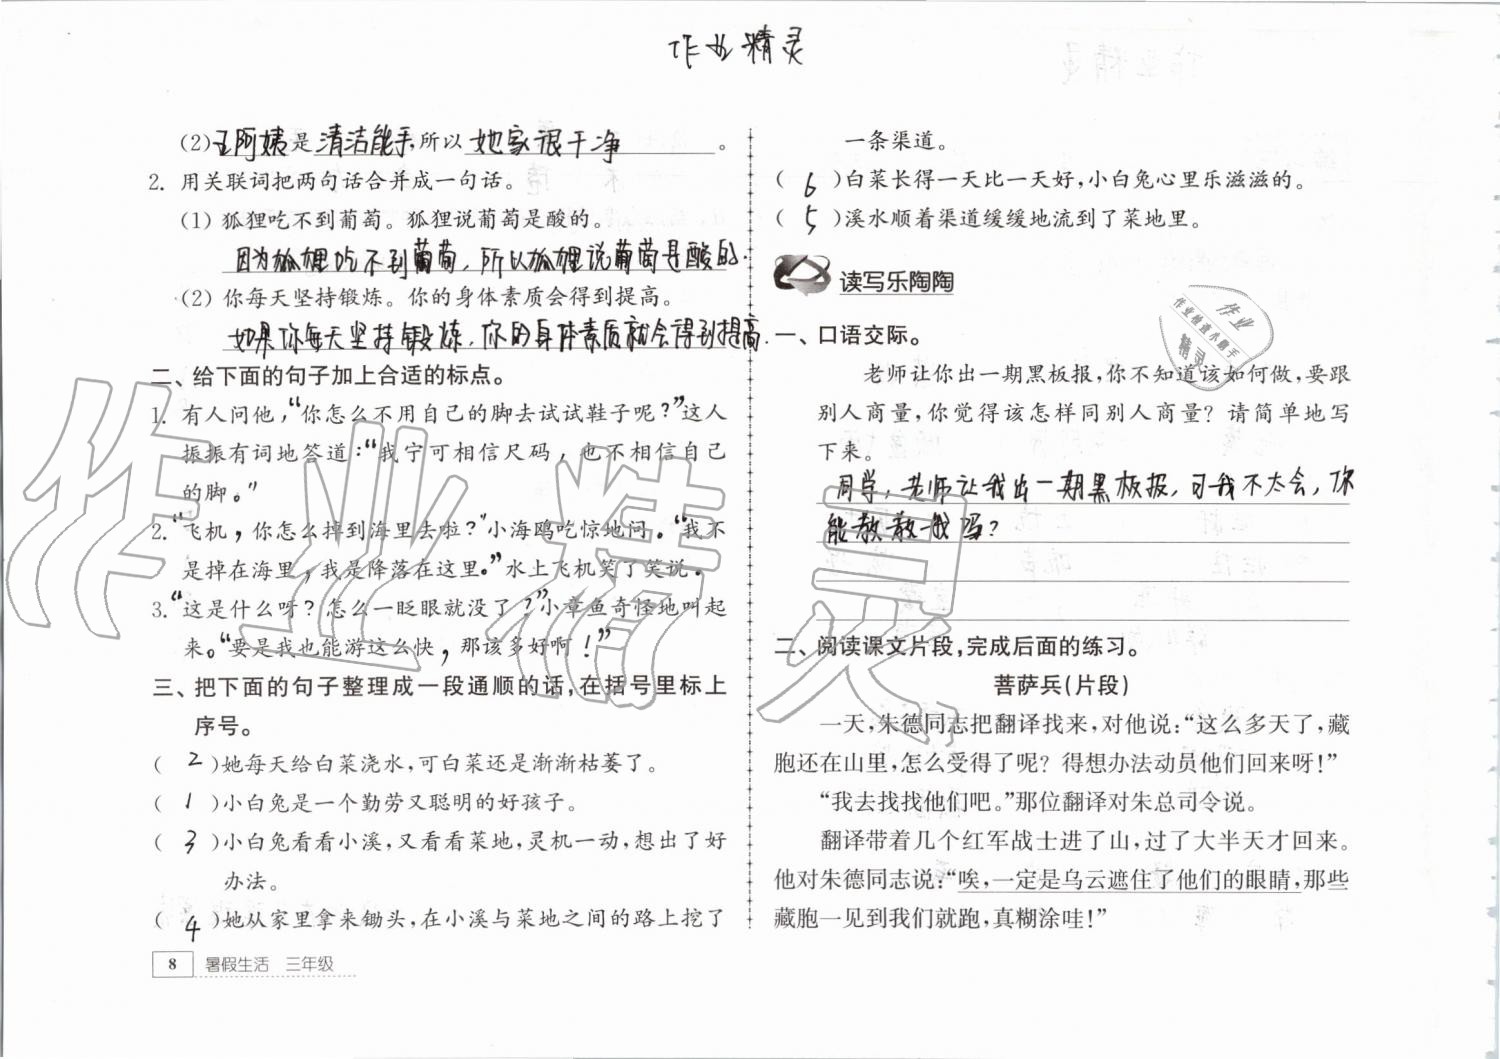 作业精灵
(2)王阿姨是 清洁能手,所以 她家很干净 。
2. 用关联词把两句话合并成一句话。
(1) 狐狸吃不到葡萄。狐狸说葡萄是酸的。
因为狐狸吃不到葡萄,所以狐狸说葡萄是酸的.
(2) 你每天坚持锻炼。你的身体素质会得到提高。
如果你每天坚持锻炼,你的身体素质就会得到提高.
二、给下面的句子加上合适的标点。
1. 有人问他,“你怎么不用自己的脚去试试鞋子呢?”这人
振振有词地答道:“我宁可相信尺码,也不相信自己
的脚。”
2.“飞机,你怎么掉到海里去啦?”小海鸥吃惊地问。“我不
是掉在海里,我是降落在这里。”水上飞机笑了笑说。
3.“这是什么呀?怎么一眨眼就没了?”小章鱼奇怪地叫起
来。“要是我也能游这么快,那该多好啊!”
三、把下面的句子整理成一段通顺的话,在括号里标上
序号。
( 2 )她每天给白菜浇水,可白菜还是渐渐枯萎了。
( 1 )小白兔是一个勤劳又聪明的好孩子。
( 3 )小白兔看看小溪,又看看菜地,灵机一动,想出了好
办法。
( 4 )她从家里拿来锄头,在小溪与菜地之间的路上挖了
8 暑假生活 三年级
一条渠道。
( 6 )白菜长得一天比一天好,小白兔心里乐滋滋的。
( 5 )溪水顺着渠道缓缓地流到了菜地里。
读写乐陶陶
一、口语交际。
老师让你出一期黑板报,你不知道该如何做,要跟
别人商量,你觉得该怎样同别人商量?请简单地写
下来。
同学,老师让我出一期黑板报,可我不太会,你
能教教我吗?
二、阅读课文片段,完成后面的练习。
菩萨兵(片段)
一天,朱德同志把翻译找来,对他说:“这么多天了,藏
胞还在山里,怎么受得了呢?得想办法动员他们回来呀!”
“我去找找他们吧。”那位翻译对朱总司令说。
翻译带着几个红军战士进了山,过了大半天才回来。
他对朱德同志说:“唉,一定是乌云遮住了他们的眼睛,那些
藏胞一见到我们就跑,真糊涂哇!”
作业精灵
作业
精灵